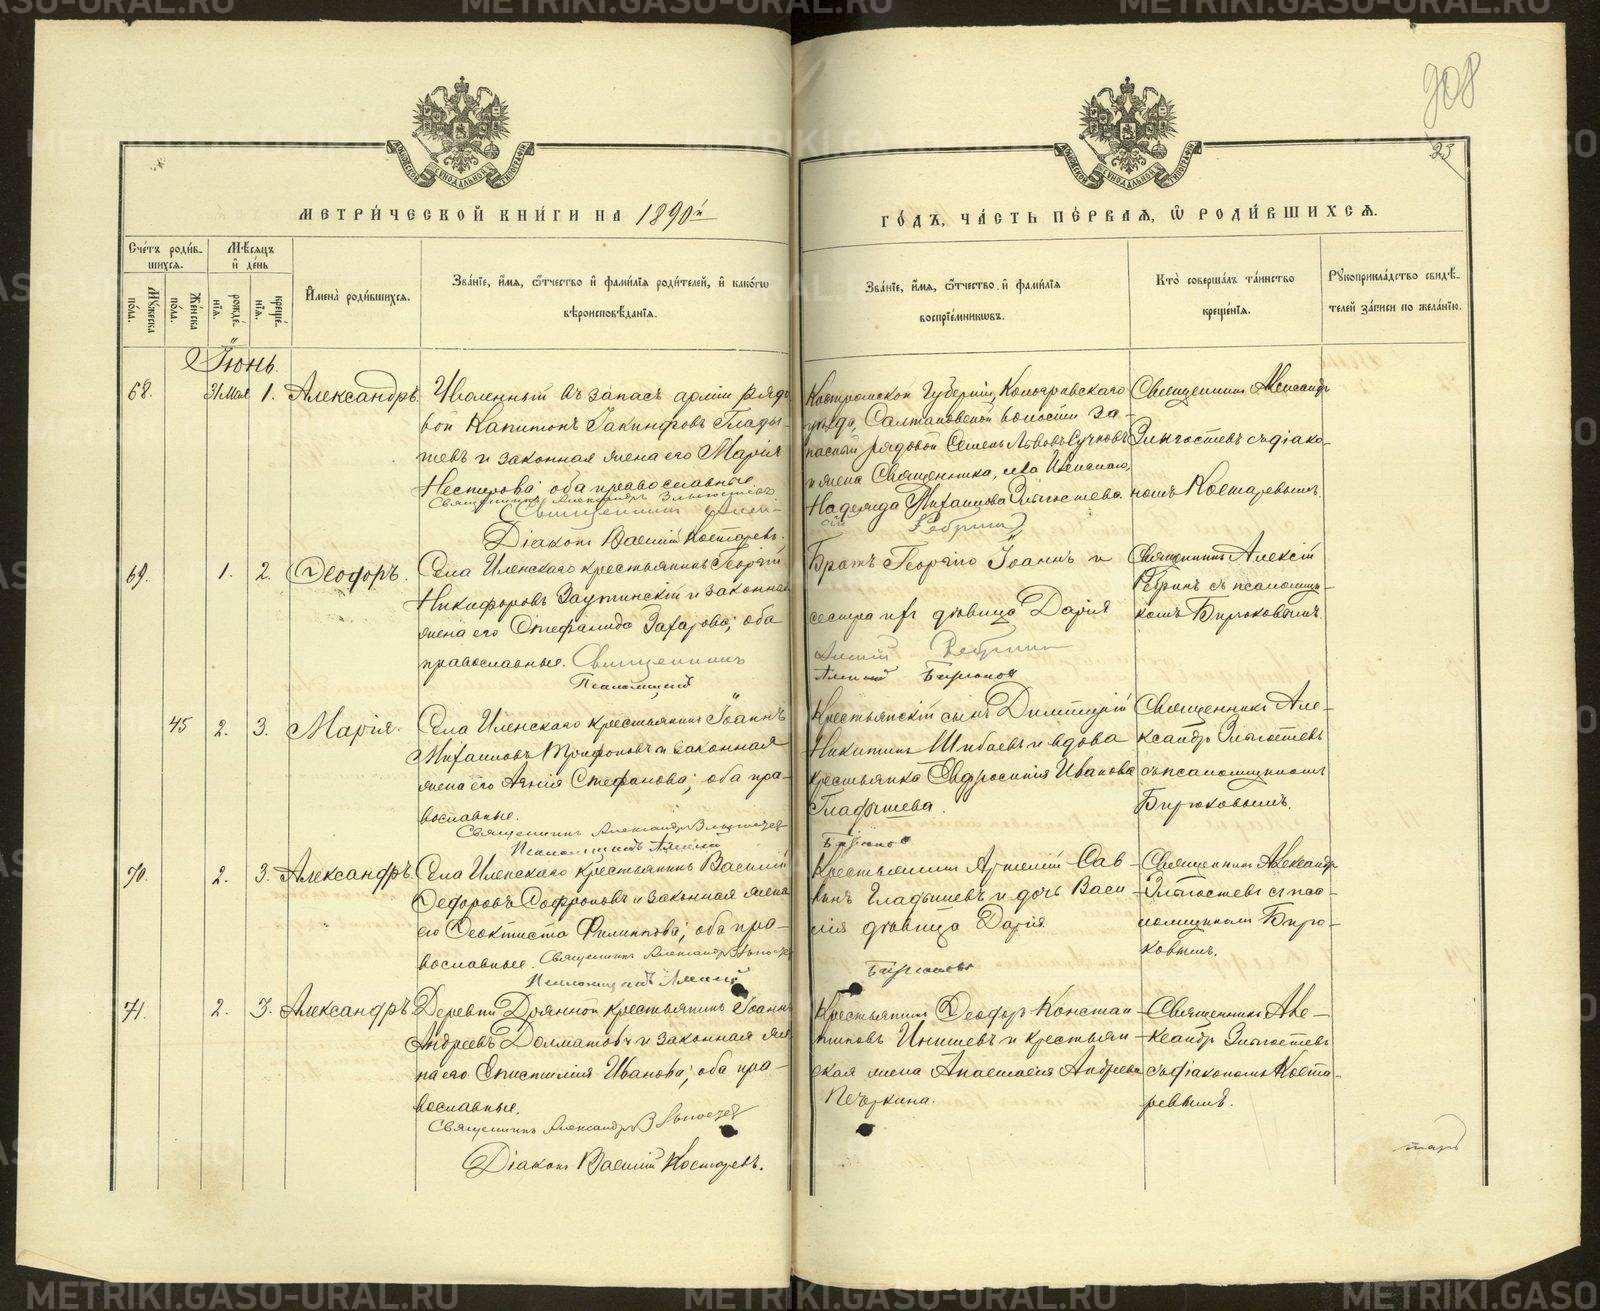 908
23
МЕТРИ́ЧЕСКОЙ КНИ́ГИ НА 1890й
ГО́ДЪ, ЧА́СТЬ ПЕ́РВАЯ, Ѡ РОДИ́ВШИХСЯ.
Сче́тъ роди́в-
шихся.
Мѣ́сяцъ
и҆ де́нь
Му́жеска
по́ла.
Же́нска
по́ла.
рожде́-
нїѧ.
креще́-
нїѧ.
И҆мена̀ роди́вшихся.
Зва́нїе, и҆́мя, ѻ҆́тчество и҆ фами́лїя роди́телей, и҆ како́гѡ
вѣроисповѣ́данїѧ.
Зва́нїе, и҆́мя, ѻ҆́тчество и҆ фами́лїя
воспрїе́мникѡвъ.
Кто̀ соверша́лъ та́инство
креще́нїѧ.
Рꙋкоприкла́дство свидѣ́-
телей за́писи по жела́нїю.
Іюнь.
68.
31 Мая
1.
Александръ.
Уволенный въ запасъ арміи рядо
вой Капитонъ Іакинфовъ Глады-
шевъ и законная жена его Марія
Нестерова; оба православные.
Священникъ Александръ Злыгостевъ
Священникъ Алек-
Діаконъ Василій Костаревъ.
Костромской Губерніи, Кологривскаго
уѣзда, Салтановской волости за-
пасный рядовой Семенъ Львовъ Сучковъ
и жена Священника, села Иленскаго,
Надежда Михаилова Злыгостева.
сій Ребринъ
Священникъ Александръ
Злыгостевъ съ діако-
номъ Костаревымъ.
69.
1.
2.
Ѳеодоръ.
Села Иленскаго крестьянинъ Георгій
Никифоровъ Заутинскій и законная
жена его Стефанида Захарова; оба
православные. Священникъ
Псаломщикъ
Братъ Георгія Іоаннъ и
сестра ихъ дѣвица Дарія
Алексій Ребринъ
Алексій Бирюковъ
Священникъ Алексій
Ребринъ съ псаломщи-
комъ Бирюковымъ.
45
2.
3.
Марія.
Села Иленскаго крестьянинъ Іоаннъ
Михаиловъ Трифоновъ и законная
жена его Агнія Стефанова; оба пра-
вославные.
Священникъ Александръ Злыгостевъ
Псаломщикъ Алексій
Крестьянскій сынъ Димитрій
Никитинъ Шибаевъ и вдова
крестьянка Евдросинія Иванова
Гладышева.
Бирюковъ
Священникъ Але-
ксандръ Злыгостевъ
съ псаломщикомъ
Бирюковымъ.
70.
2.
3.
Александръ.
Села Иленскаго крестьянинъ Василій
Ѳедоровъ Софроновъ и законная жена
его Ѳеоктиста Филиппова; оба пра-
вославные. Священникъ Александръ Злыгостевъ
Псаломщикъ Алексій
Крестьянинъ Артемій Сав-
винъ Гладышевъ и дочь Васи-
лія дѣвица Дарія.
Бирюковъ
Священникъ Александръ
Злыгостевъ съ пса-
ломщикомъ Бирю-
ковымъ.
71.
2.
3.
Александръ
Деревни Дрянной крестьянинъ Іоаннъ
Андреевъ Долматовъ и законная же-
на его Епистилія Иванова; оба пра-
вославные.
Священникъ Александръ Злыгостевъ
Діаконъ Василій Костаревъ.
Крестьянинъ Ѳеодоръ Констан-
тиновъ Инишевъ и крестьян-
ская жена Анастасія Андреева
Печеркина.
Священникъ Але-
ксандръ Злыгостевъ
съ діакономъ Коста-
ревымъ.